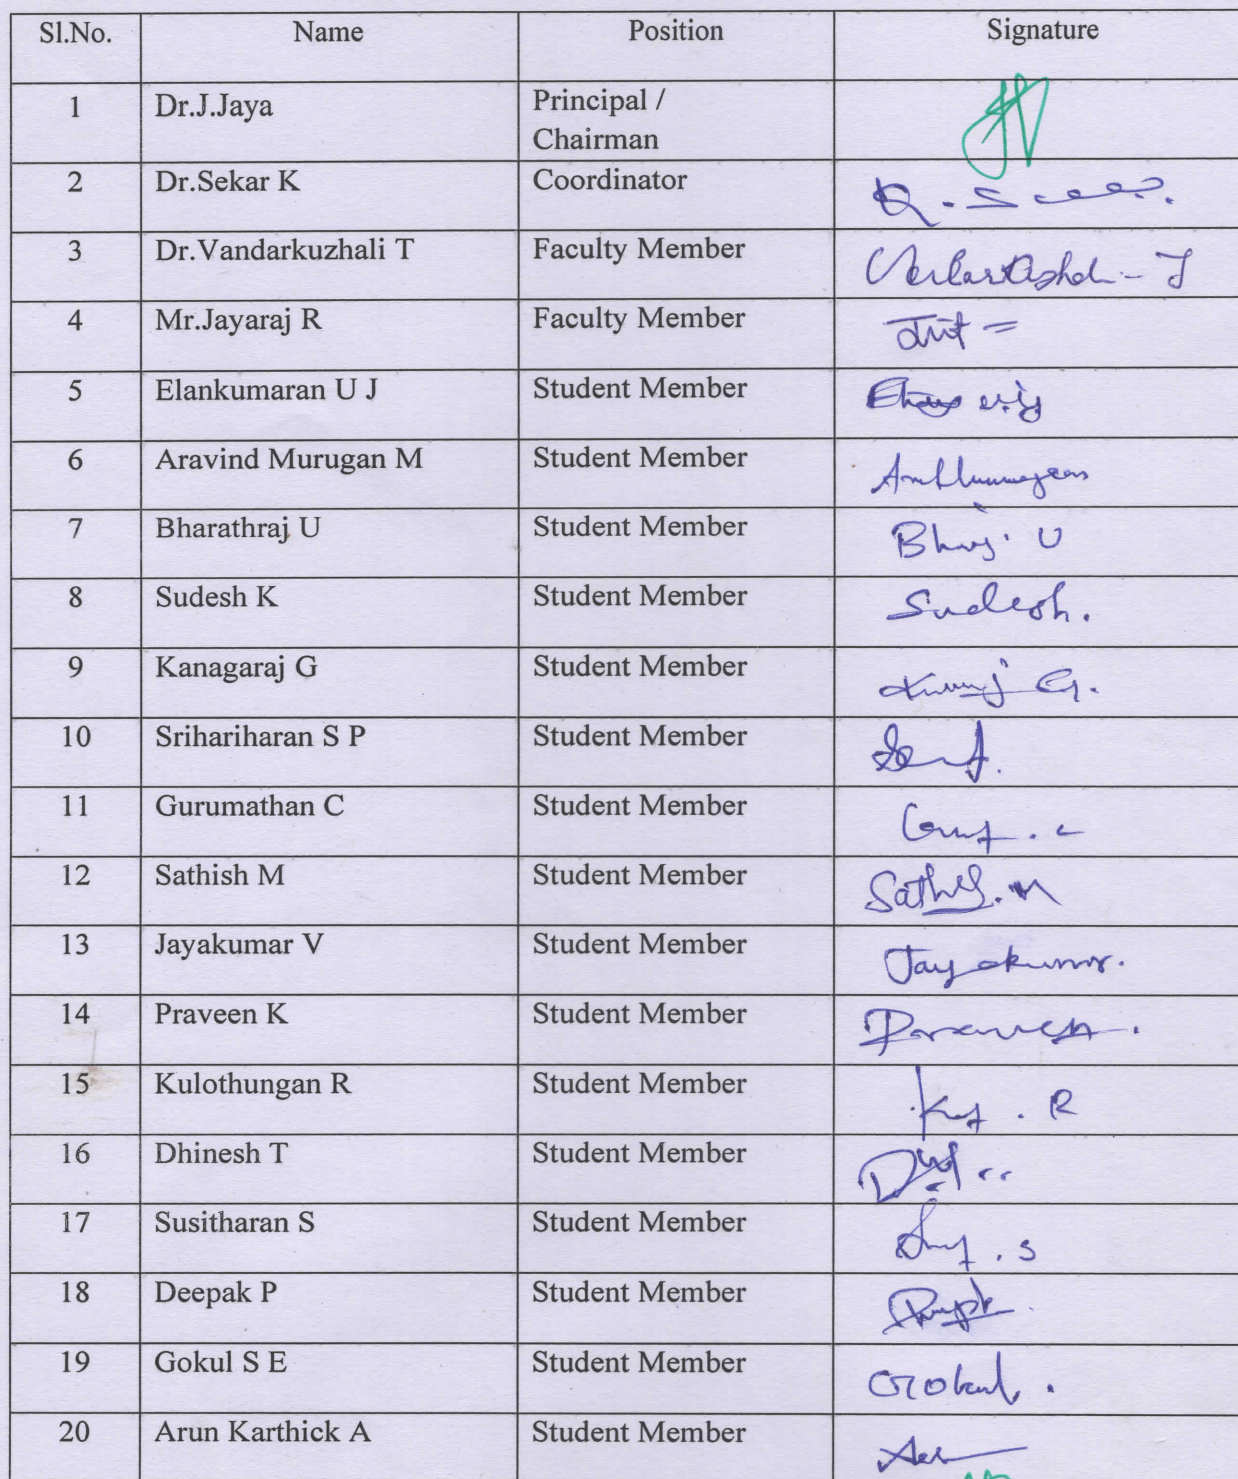 Sl.No. Name Position Signature
1 Dr.J.Jaya Principal /
Chairman
2 Dr.Sekar K Coordinator
3 Dr.Vandarkuzhali T Faculty Member
4 Mr.Jayaraj R Faculty Member
5 Elankumaran U J Student Member
6 Aravind Murugan M Student Member
7 Bharathraj U Student Member
8 Sudesh K Student Member Sudesh.
9 Kanagaraj G Student Member
10 Srihariharan S P Student Member
11 Gurumathan C Student Member
12 Sathish M Student Member
13 Jayakumar V Student Member Jayakumar.
14 Praveen K Student Member Praveen.
15 Kulothungan R Student Member
16 Dhinesh T Student Member
17 Susitharan S Student Member
18 Deepak P Student Member
19 Gokul S E Student Member Gokul.
20 Arun Karthick A Student Member